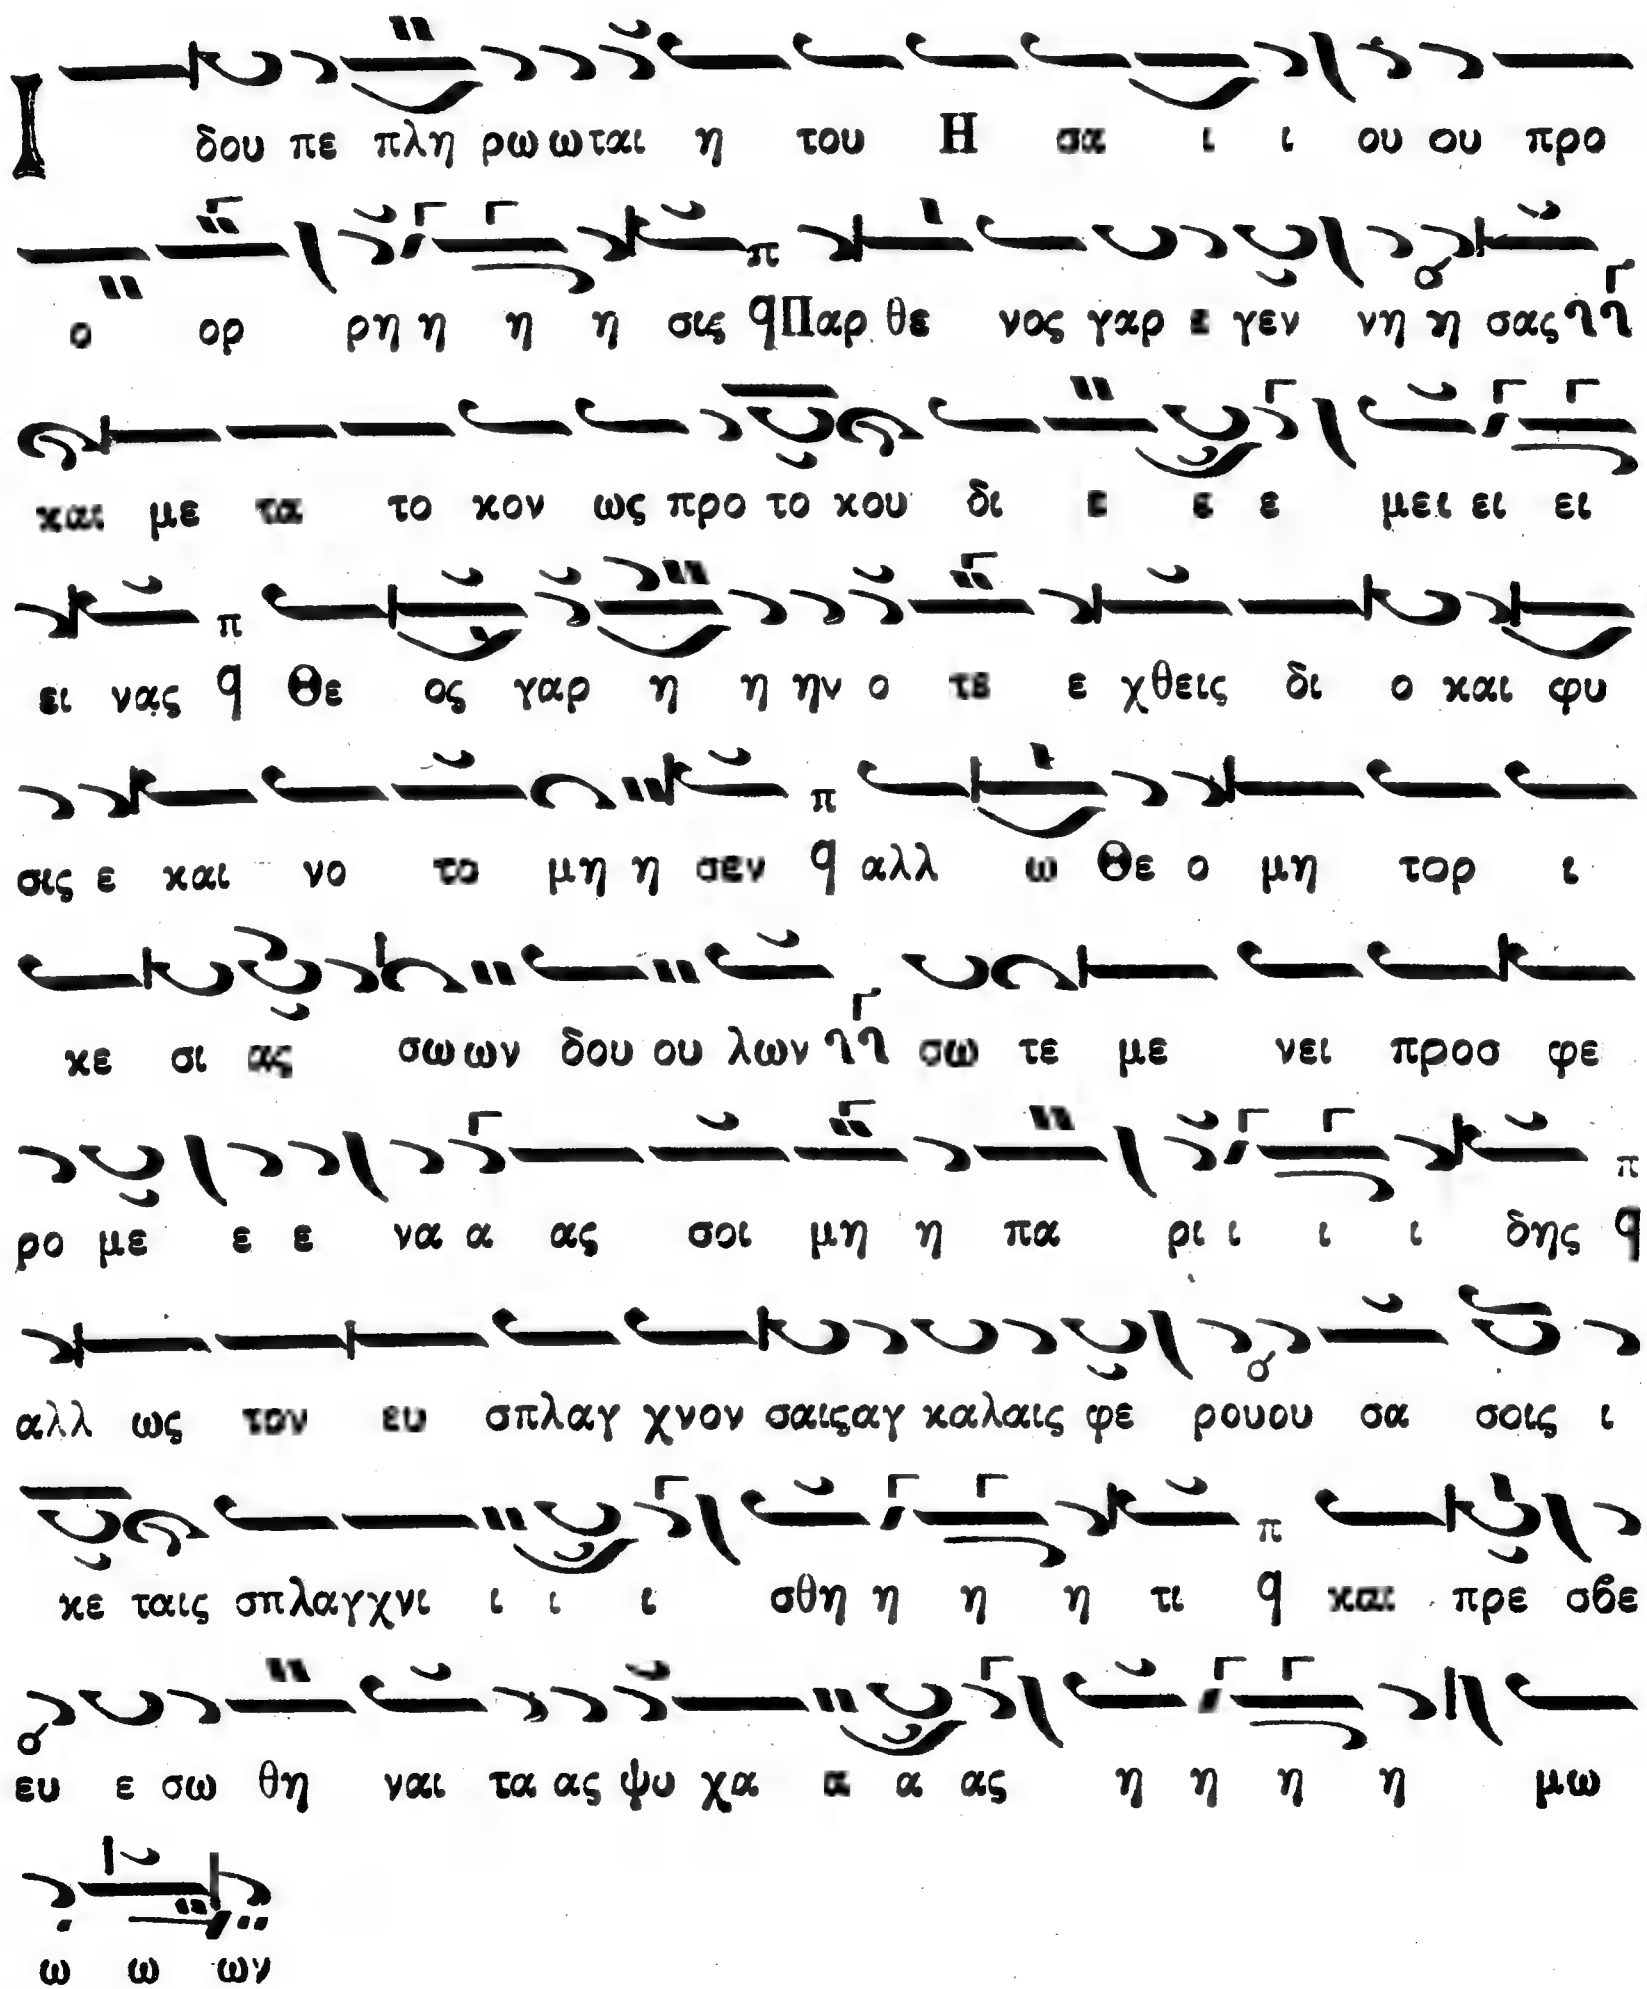 Ι δου πε πλη ρω ω ται η του Η σα ι ι ου ου προ
ο ορ ρη η η η σις q Παρ θε νος γαρ ε γεν νη η σας
και με τα το κον ως προ το κου δι ε ε ε μει ει ει
ει νας q Θε ος γαρ η η ην ο τε ε χθεις δι ο και φυ
σις ε και νο το μη η σεν q αλλ ω Θε ο μη τορ ι
κε σι ας σω ων δου ου λων σω τε με νει προσ φε
ρο με ε ε να α ας σοι μη η πα ρι ι ι ι δης q
αλλ ως τον ευ σπλαγ χνον σαις αγ καλαις φε ρουου σα σοις ι
κε ταις σπλαγχνι ι ι ι σθη η η η τι q και πρε σβε
ευ ε σω θη ναι τα ας ψυ χα α α ας η η η η μω
ω ω ων